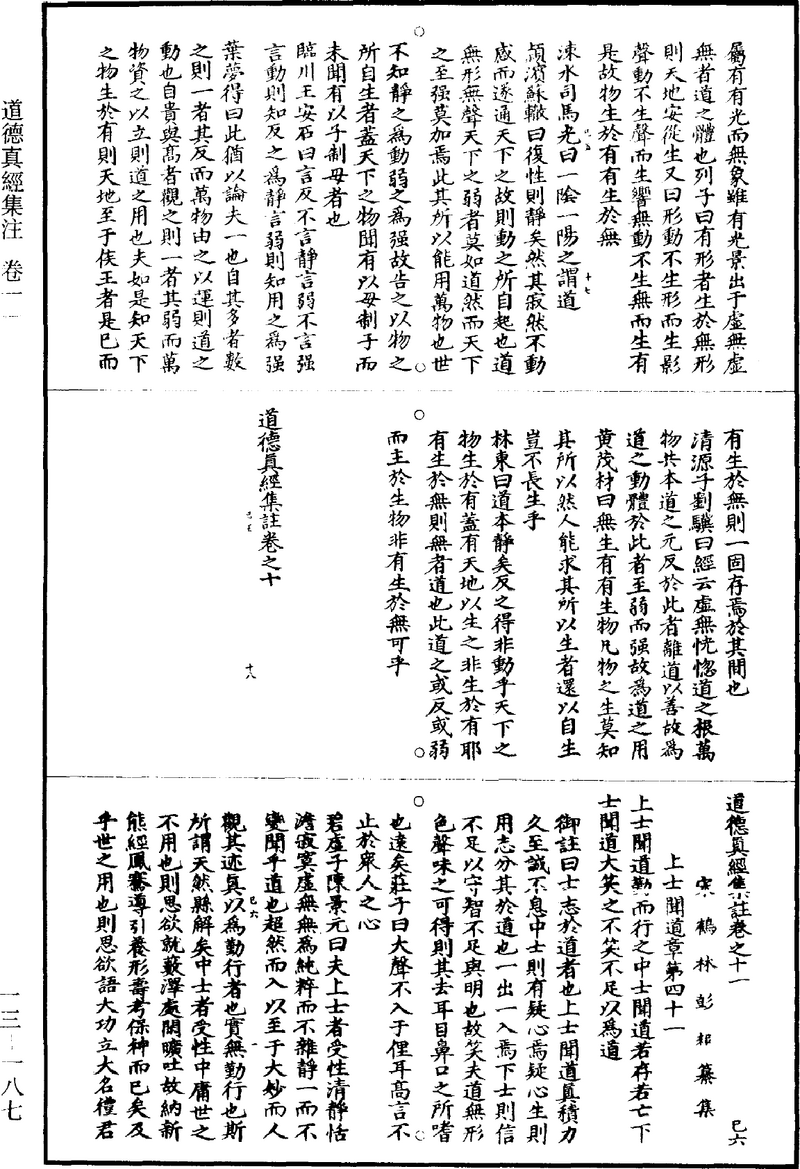 屬有有光而無象雖有光景出于虛無虛
無者道之體也列子曰有形者生於無形
則天地安從生又曰形動不生形而生影
聲動不生聲而生響無動不生無而生有
是故物生於有有生於無
涑水司馬光曰一陰一陽之謂道
十七
潁濱蘇轍曰復性則靜矣然其寂然不動
感而遂通天下之故則動之所自起也道
無形無聲天下之弱者莫如道然而天下
之至强莫加焉此其所以能用萬物也世
不知靜之為動弱之為强故告之以物之
所自生者蓋天下之物聞有以母制子而
未聞有以子制母者也
臨川王安石曰言反不言靜言弱不言强
言動則知反之為靜言弱則知用之為强
葉夢得曰此猶以論夫一也自其多者數
之則一者其反而萬物由之以運則道之
動也自貴與高者觀之則一者其弱而萬
物資之以立則道之用也夫如是知天下
之物生於有則天地至于侯王者是已而
有生於無則一固存焉於其間也
清源子劉驥曰經云虛無恍惚道之根萬
物共本道之元反於此者離道以善故為
道之動體於此者至弱而强故為道之用
黄茂材曰無生有有生物凡物之生莫知
其所以然人能求其所以生者還以自生
豈不長生乎
林東曰道本靜矣反之得非動乎天下之
物生於有蓋有天地以生之非生於有耶
有生於無則無者道也此道之或反或弱
而主於生物非有生於無可乎
道德真經集註卷之十
十八
道德真經集註卷之十一
宋鶴林彭耜纂集
巳六
上士聞道章第四十一
上士聞道勤而行之中士聞道若存若亡下
士聞道大笑之不笑不足以為道
御註曰士志於道者也上士聞道真積力
久至誠不息中士則有疑心焉疑心生則
用志分其於道也一出一入焉下士則信
不足以守智不足與明也故笑夫道無形
色聲味之可得則其去耳目鼻口之所嗜
也遠矣莊子曰大聲不入于俚耳高言不
止於衆人之心
碧虛子陳景元曰夫上士者受性清靜恬
澹寂寞虛無無為純粹而不雜靜一而不
變聞乎道也超然而入以至于大妙而人
巳六
一
觀其迹真以為勤行者也實無勤行也斯
所謂天然縣解矣中士者受性中庸世之
不用也則思欲就藪澤處閒曠吐故納新
熊經鳳騫導引養形壽考保神而已矣及
乎世之用也則思欲語大功立大名禮君
道德真經集注 卷一一
一三—一八七